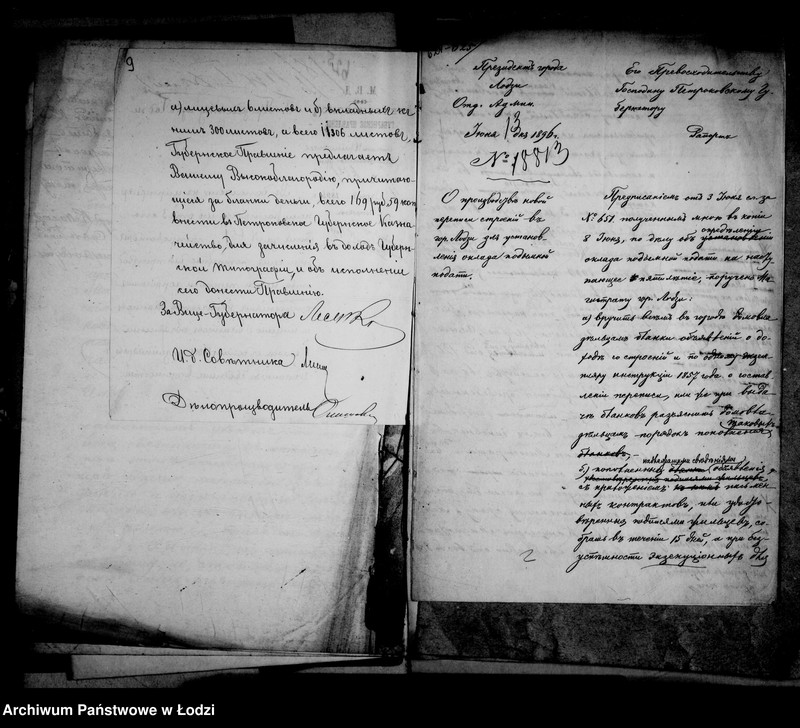 9
а) лицевыхъ 6 листовъ и б) вкладныхъ къ
нимъ 300 листовъ, а всего 11306 листовъ,
Губернское Правленіе предлагаетъ
Вашему Высокоблагородію, причитаю-
щіяся за бланки деньги, всего 169 руб. 59 коп.
внести въ Петроковское Губернское Казна-
чейство, для зачисленія въ доходъ Губерн-
ской типографіи, и объ исполненіи
сего донести Правленію.
За Вице-Губернатора
И. д. Совѣтника
Дѣлопроизводитель
Президентъ города
Лодзи
Отд. Админ.
Іюня 13 дня 1896 г.
№ 18813
О производствѣ новой
переписи строеній въ
гор. Лодзи для установ-
ленія оклада подымной
подати.
Его Превосходительству
Господину Петроковскому Гу-
бернатору
Рапортъ
Предписаніемъ отъ 3 Іюня с. г. за
№ 651 полученнымъ мною въ копіи
опредѣленіи
8 Іюня, по дѣлу объ установленіи
оклада подымной подати на насту-
пающее пятилѣтіе, поручено Ма-
гистрату гор. Лодзи:
а) вручить всѣмъ въ городѣ домовла-
дѣльцамъ бланки объявленій о до-
ходѣ со строеній и по одному экзем-
пляру инструкціи 1857 года о состав-
леніи переписи, при выда-
чѣ бланковъ разъяснить домовла-
таковыхъ
дѣльцамъ порядокъ пополненія
бланковъ,
б) пополненныя объявленія
съ приложеніемъ письмен-
ныхъ контрактовъ, или удосто-
вѣренныя подписями жильцовъ, со-
брать въ теченіи 15 дней, а при без-
успѣшности экзекуціонныхъ
2
Archiwum Państwowe w Łodzi